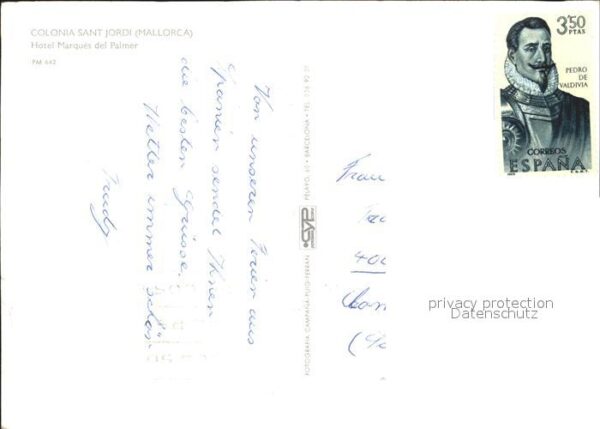 COLONIA SANT JORDI (MALLORCA)
Hotel Marqués del Palmer
PM 642
Von unseren Ferien aus
Spanien sendet Ihnen
die besten Grüsse.
Wetter immer schön
Trudy
FOTOGRAFIA CAMPAÑA PUIG-FERRAN
cyp
PELAYO, 60 • BARCELONA • TEL.
3'50
PTAS
PEDRO DE
VALDIVIA
CORREOS
ESPAÑA
Frau
400
privacy protection
Datenschutz